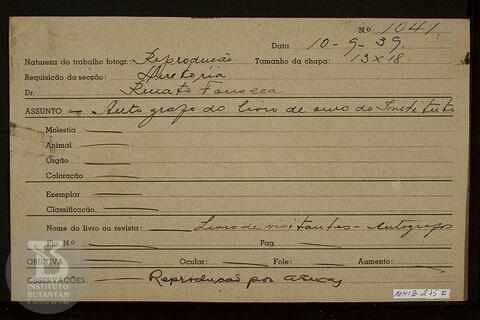 N.o 1041.
Data 10-9-39.
Natureza do trabalho fotogr.: Reprodução Tamanho da chapa: 13x18.
Requisição da secção: Diretoria
Dr. Renato Fonseca
ASSUNTO — Autografo do livro de ouro do Instituto
Molestia
Animal
Orgão
Coloração
Exemplar
Classificação
Nome do livro ou revista: Livro de visitantes - Autografos
Fig. N.o Pag.
OBJETIVA Ocular: Fole: Aumento:
OBSERVAÇÕES: Reprodução por
INSTITUTO
BUTANTAN
A SERVIÇO DA VIDA